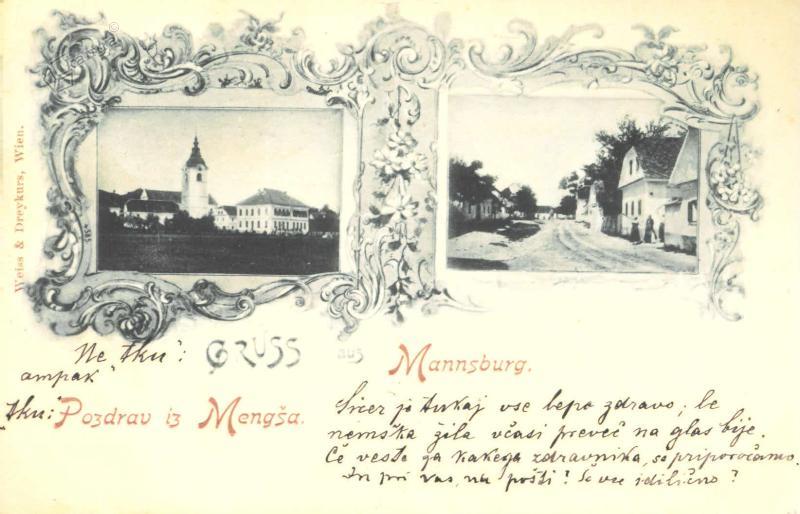 Weiss & Dreykurs, Wien.
Ne "tku":
GRUSS aus Mannsburg.
ampak
"tku": Pozdrav iz Mengša.
Sicer je tukaj vse lepo zdravo, le
nemška žila včasi preveč na glas bije.
Če veste ga kakega zdravnika, se priporočamo.
In pri vas, na pošti? Še vse idilično?